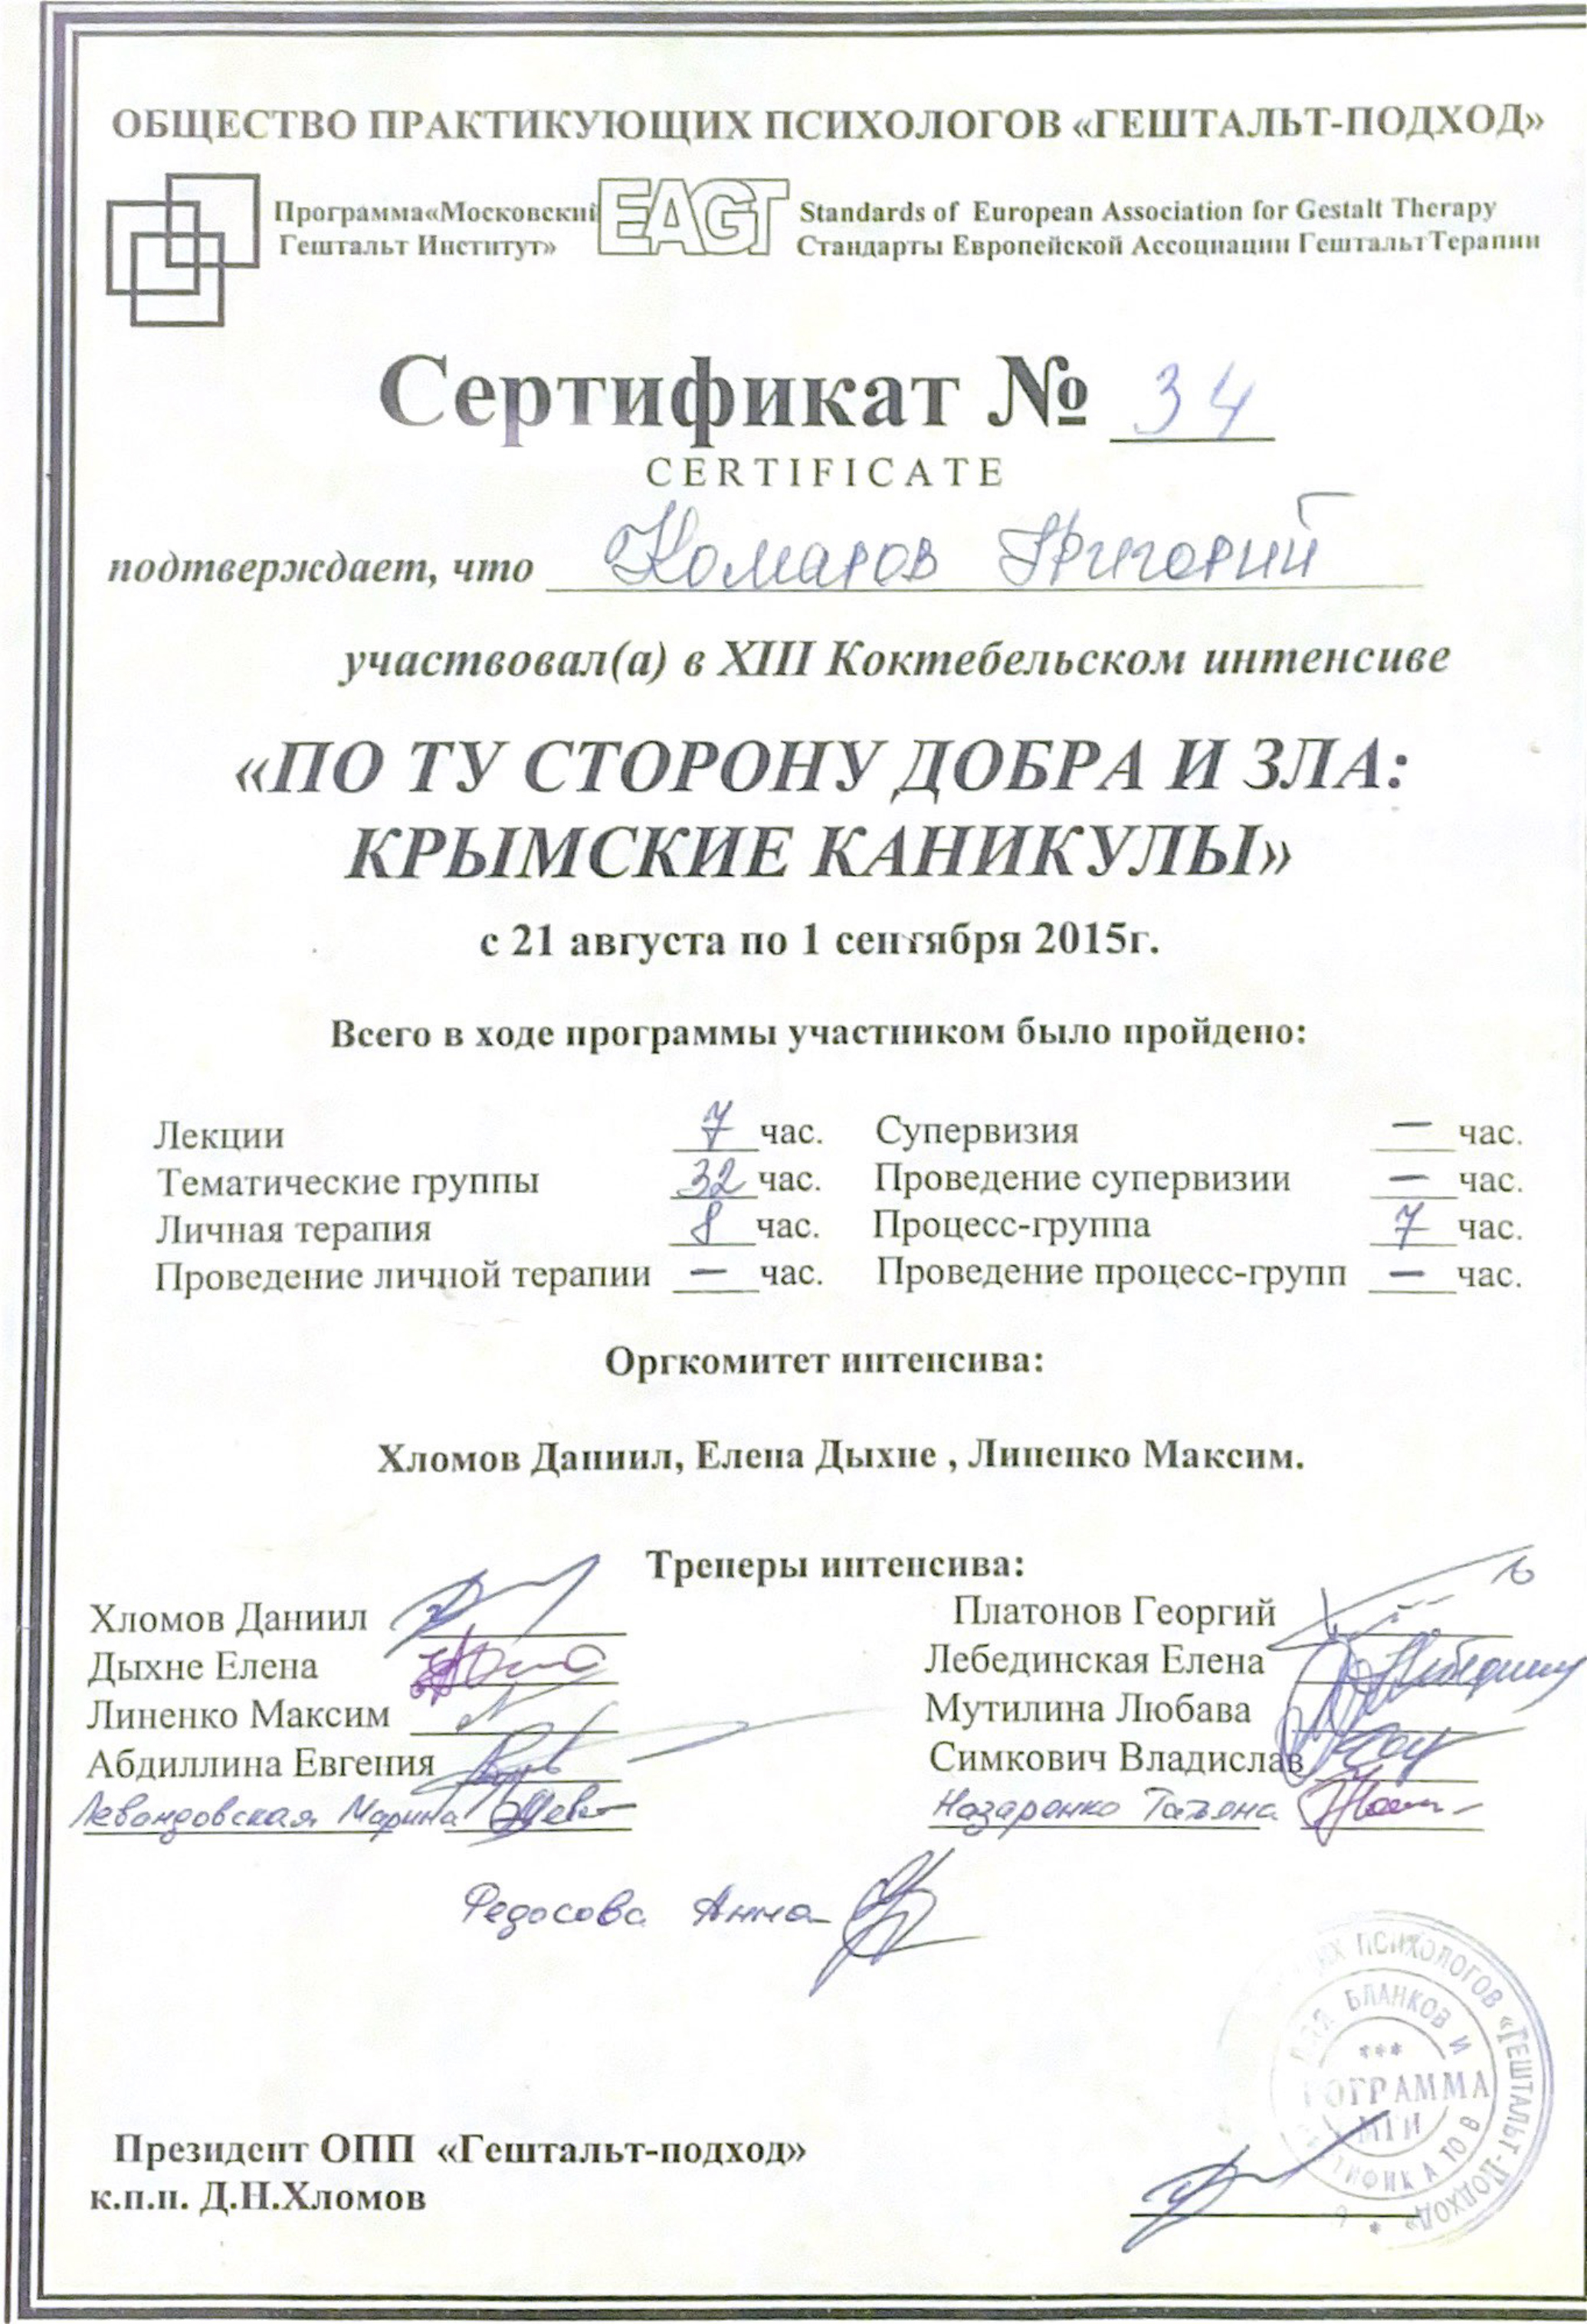 ОБЩЕСТВО ПРАКТИКУЮЩИХ ПСИХОЛОГОВ «ГЕШТАЛЬТ-ПОДХОД»
Программа«Московский Гештальт Институт»
EAGT
Standards of European Association for Gestalt Therapy
Стандарты Европейской Ассоциации ГештальтТерапии
Сертификат № 34
CERTIFICATE
подтверждает, что Комаров Григорий
участвовал(а) в XIII Коктебельском интенсиве
«ПО ТУ СТОРОНУ ДОБРА И ЗЛА:
КРЫМСКИЕ КАНИКУЛЫ»
с 21 августа по 1 сентября 2015г.
Всего в ходе программы участником было пройдено:
Лекции 7 час. Супервизия — час.
Тематические группы 32 час. Проведение супервизии — час.
Личная терапия 8 час. Процесс-группа 7 час.
Проведение личной терапии — час. Проведение процесс-групп — час.
Оргкомитет интенсива:
Хломов Даниил, Елена Дыхне , Линенко Максим.
Тренеры интенсива:
Хломов Даниил Платонов Георгий
Дыхне Елена Лебединская Елена
Линенко Максим Мутилина Любава
Абдиллина Евгения Симкович Владислав
Левандовская Марина Назаренко Татьяна
Федосова Анна
ПСИХОЛОГОВ «ГЕШТАЛЬТ-ПОДХОД» *
БЛАНКОВ И
***
МГИ
Президент ОПП «Гештальт-подход»
к.п.н. Д.Н.Хломов